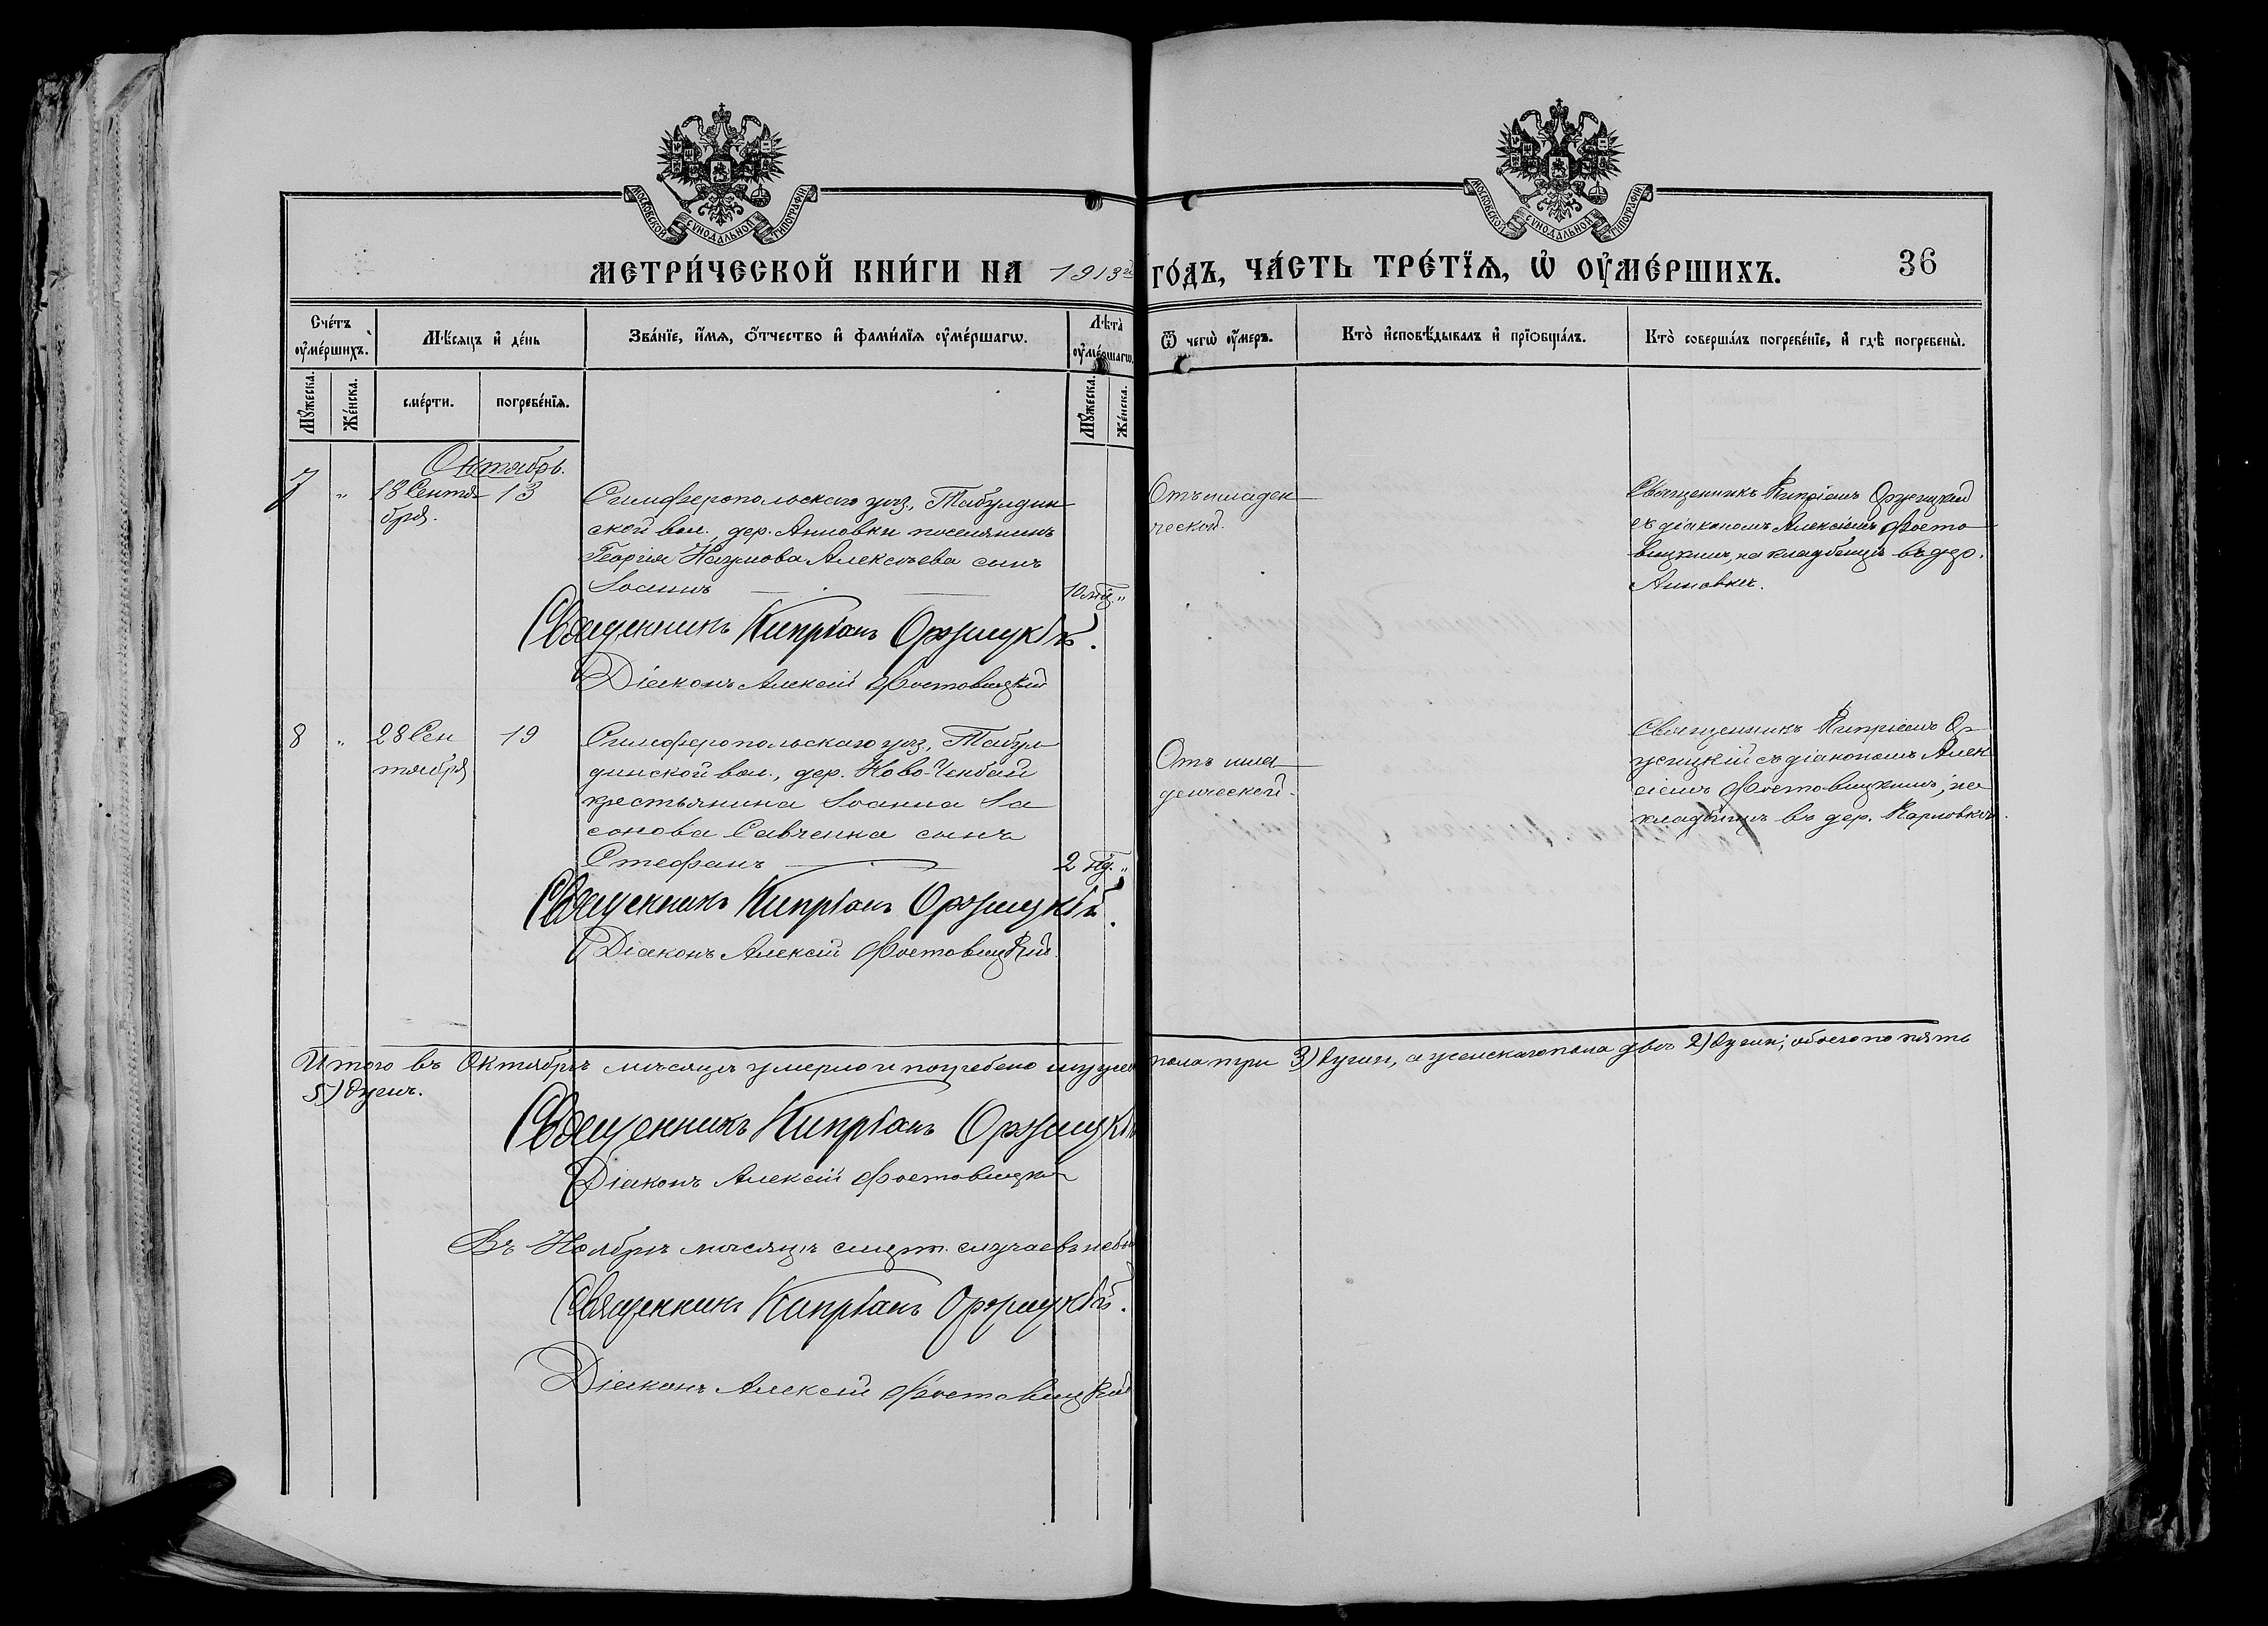 МОСКОВСКОЙ СѴНОДАЛЬНОЙ ТИПОГРАФІИ
МОСКОВСКОЙ СѴНОДАЛЬНОЙ ТИПОГРАФІИ
МЕТРИ́ЧЕСКОЙ КНИ́ГИ НА 1913й ГО́ДЪ, ЧА́СТЬ ТРЕ́ТЇѦ, Ѡ҆ ОУ҆МЕ́РШИХЪ. 36
Сче́тъ оу҆ме́ршихъ.
Мѣ́сяцъ и҆ де́нь
Зва́нїе, и҆́мѧ, ѻ҆́тчество и҆ фами́лїѧ оу҆ме́ршагѡ.
Лѣта̀ оу҆ме́ршагѡ.
Ѿ чегѡ̀ оу҆́меръ.
Кто̀ и҆сповѣ́дывалъ и҆ прїѡбща́лъ.
Кто̀ соверша́лъ погребе́нїе, и҆ гдѣ̀ погребены̀.
Мꙋ́жеска.
Же́нска.
сме́рти.
погребе́нїѧ.
Мꙋ́жеска.
Же́нска.
Октябрь.
7 „ 18 Сентя- 13
бря.
Симферопольскаго уѣз., Табулдин
ской вол., дер. Анновки поселянина
Георгія Наумова Алексѣева сынъ
Іоаннъ 10 мѣ. „
Отъ младен
ческой.
Священникъ Кипріанъ Оржицкій
съ діакономъ Алексіемъ Фосто
вицкимъ, на кладбищѣ въ дер.
Анновкѣ.
Священникъ Кипріанъ Оржицкій.
Діаконъ Алексій Фостовицкій
8 „ 28 Сен 19
тября
Симферопольскаго уѣз., Табул
динской вол., дер. Ново-Ченбай
крестьянина Іоанна Са
сонова Савченка сынъ
Стефанъ 2 „
Отъ мла
денческой.
Священникъ Кипріанъ Ор
жицкій съ діакономъ Алек
сіемъ Фостовицкимъ, на
кладбищѣ въ дер. Карловкѣ.
Священникъ Кипріанъ Оржицкій.
Діаконъ Алексій Фостовицкій.
Итого въ Октябрѣ мѣсяцѣ умерло и погребено мужес пола три 3) души, а женскаго пола двѣ 2) души; обоего по пять
5) душъ.
Священникъ Кипріанъ Оржицкій
Діаконъ Алексій Фостовицкій
Въ Ноябрѣ мѣсяцѣ смерт. случаевъ не бы
Священникъ Кипріанъ Оржицкій.
Діаконъ Алексій Фостовицкій